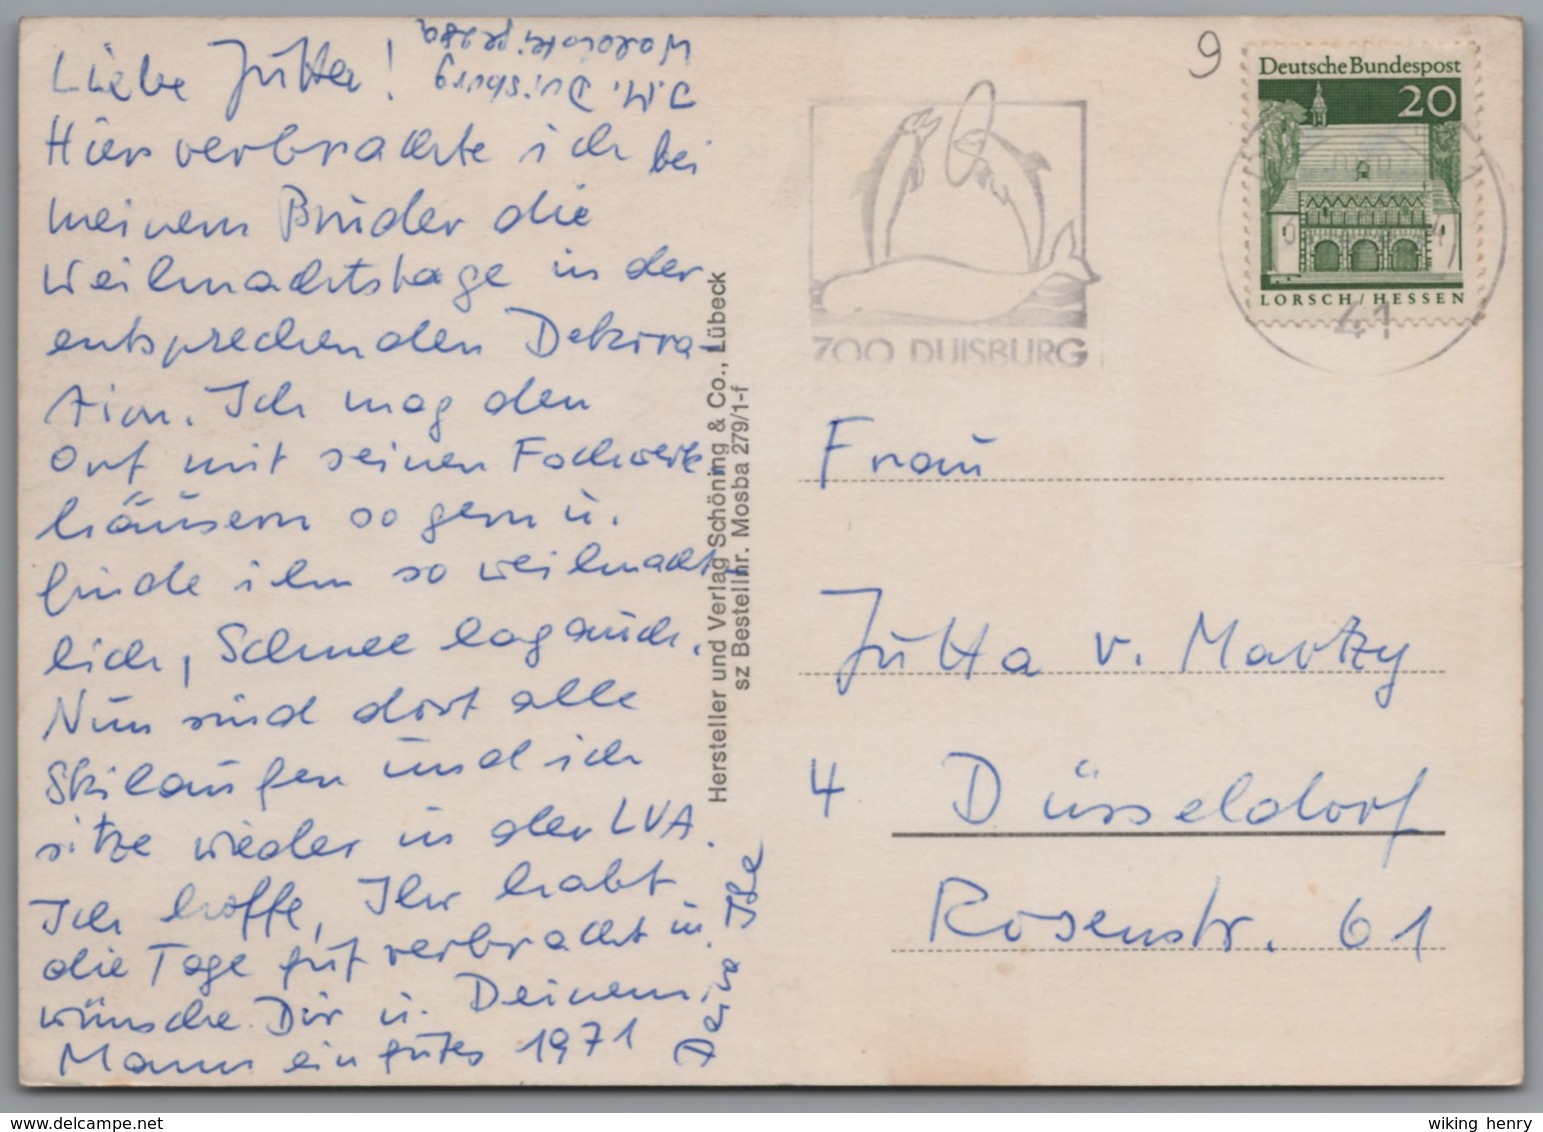 Liebe Jutta!
Hier verbrachte ich bei
meinem Bruder die
Weihnachtstage in der
entsprechenden Dekora-
tion. Ich mag den
Ort mit seinen Fachwerk
häusern so gern u.
finde ihn so weihnacht-
lich, Schnee lag auch.
Nun sind dort alle
Skilaufen und ich
sitze wieder in der LVA.
Ich hoffe, Ihr habt
die Tage gut verbracht u.
wünsche Dir u. Deinem
Mann ein gutes 1971
Deine Ilse
Duisburg
28a
Hersteller und Verlag Schöning & Co., Lübeck
sz Bestellnr. Mosba 279/1-f
ZOO DUISBURG
9
Deutsche Bundespost
20
LORSCH/HESSEN
41
Frau
Jutta v. Martzy
4 Düsseldorf
Rosenstr. 61
wiking henry